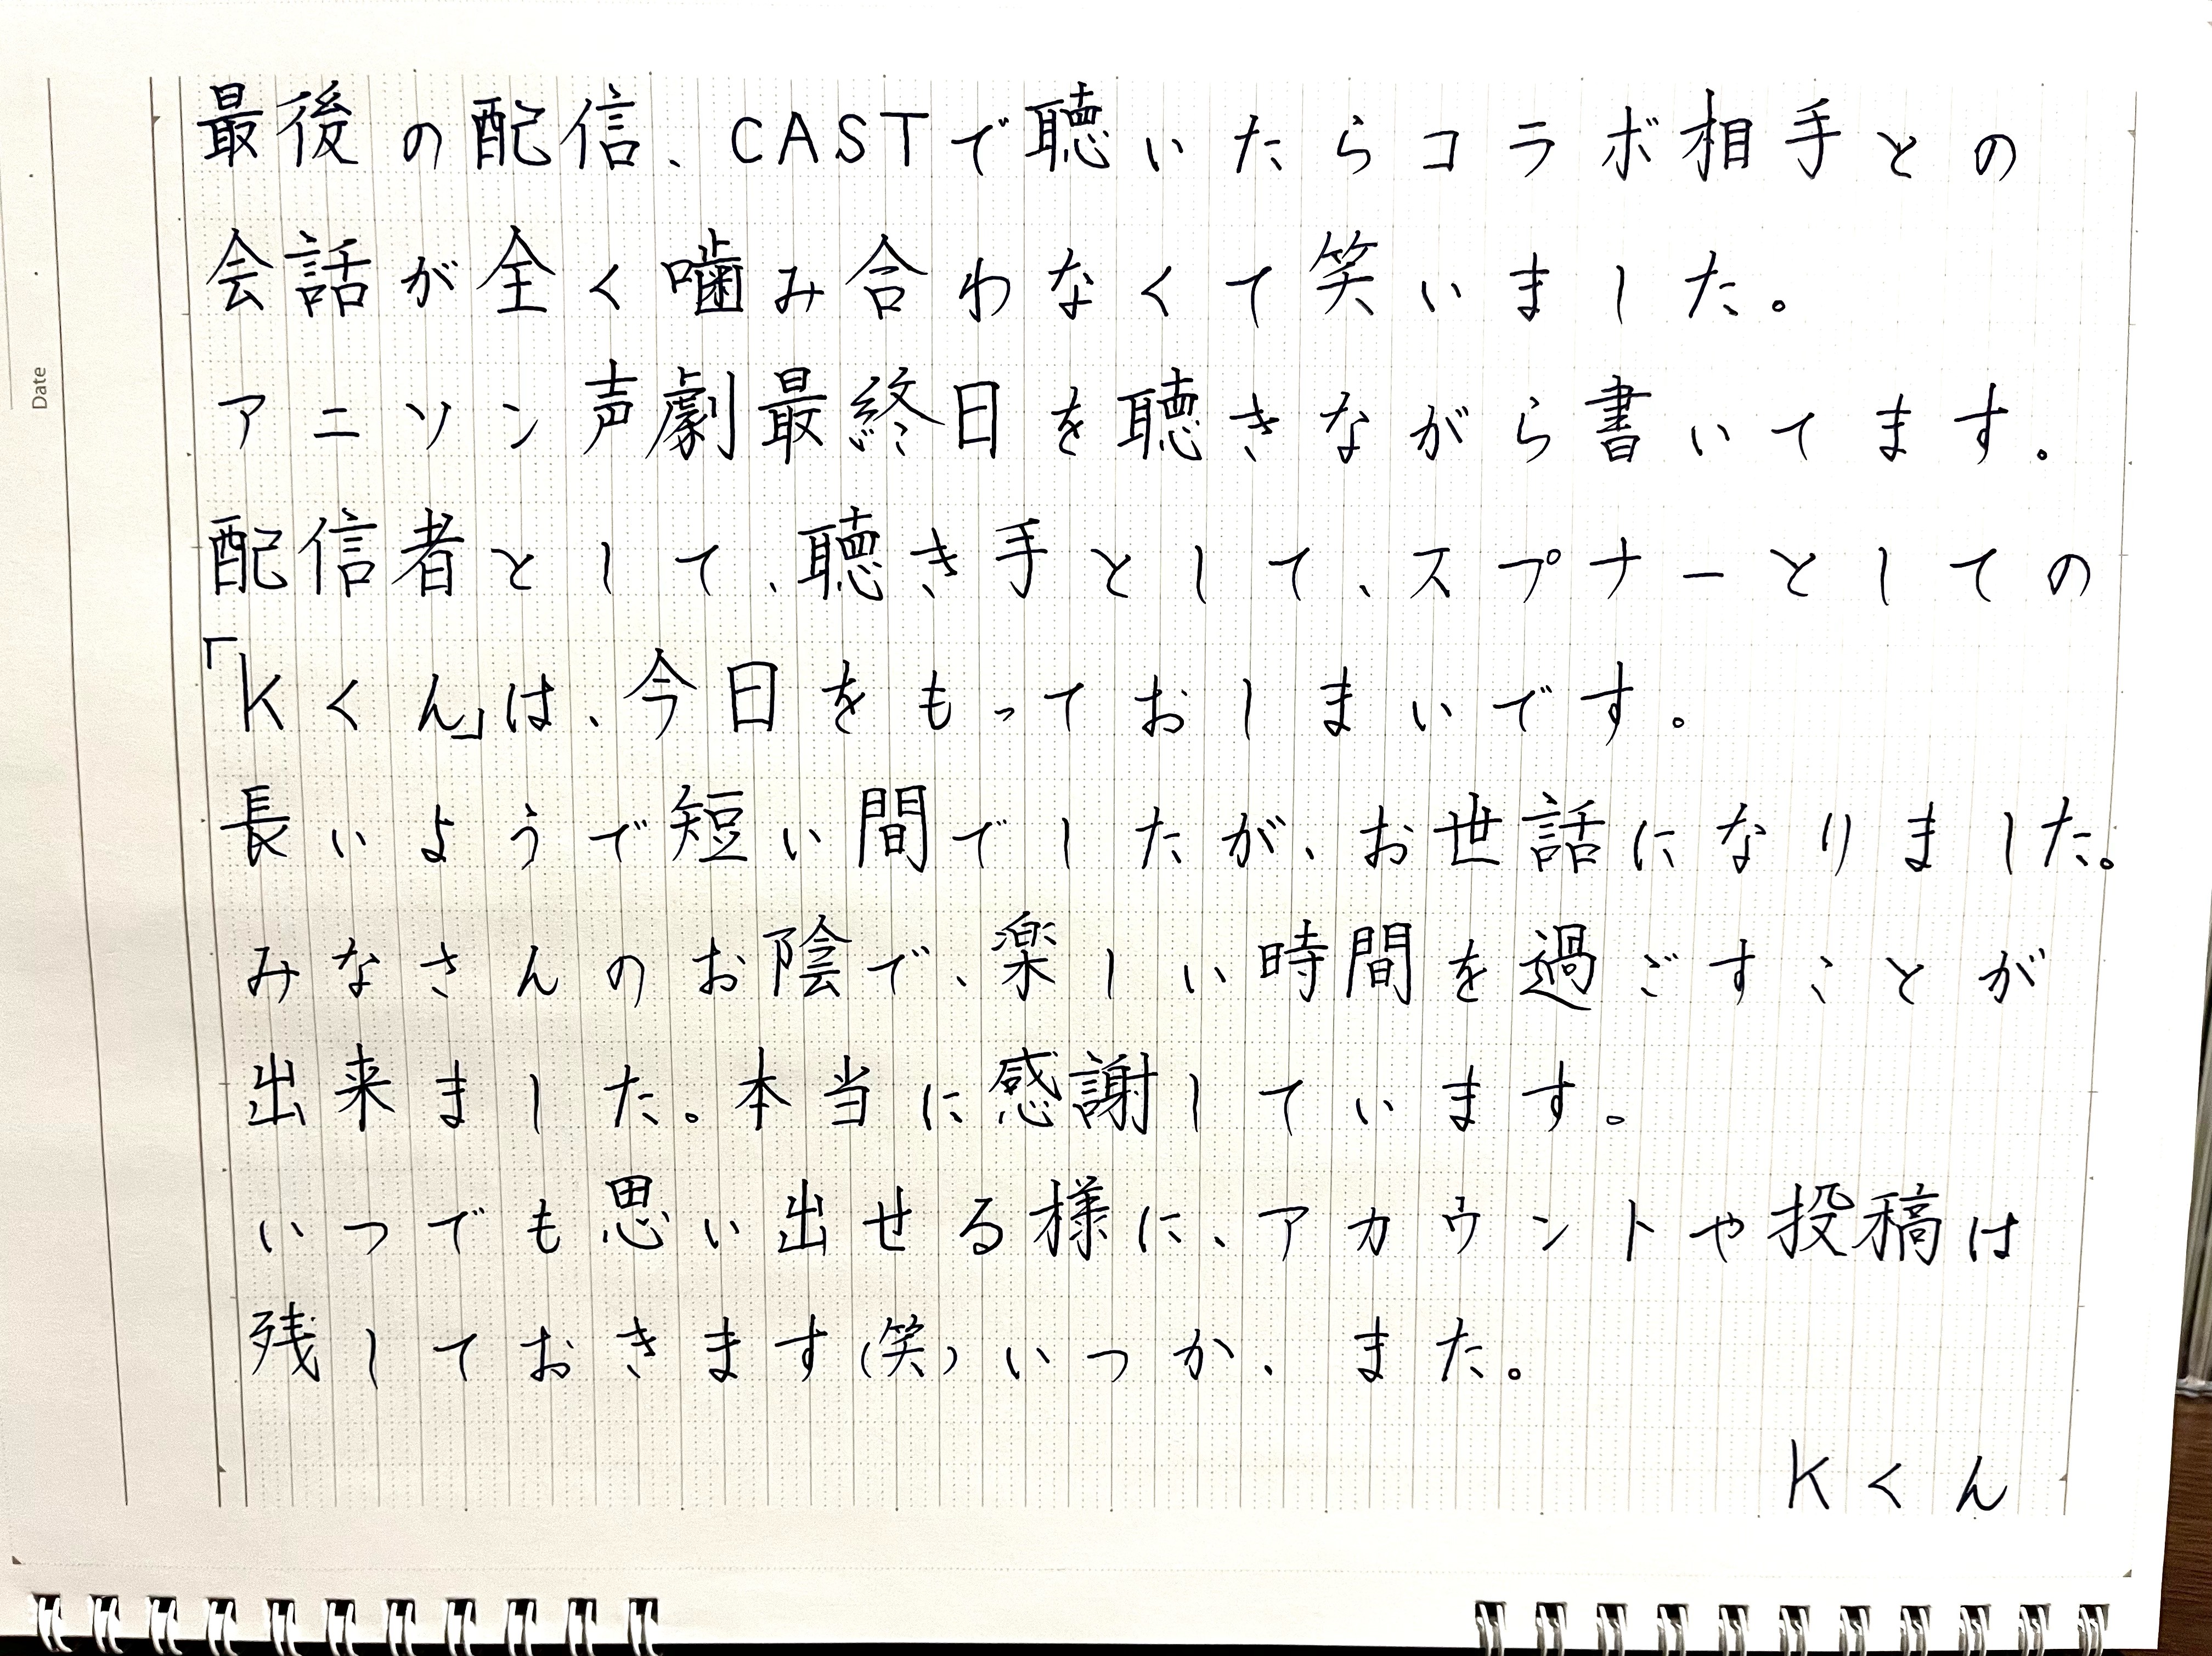 Date
最後の配信、CASTで聴いたらコラボ相手との
会話が全く噛み合わなくて笑いました。
アニソン声劇最終日を聴きながら書いてます。
配信者として、聴き手として、スプナーとしての
「Kくん」は、今日をもっておしまいです。
長いようで短い間でしたが、お世話になりました。
みなさんのお陰で、楽しい時間を過ごすことが
出来ました。本当に感謝しています。
いつでも思い出せる様に、アカウントや投稿は
残しておきます(笑)いつか、また。
Kくん